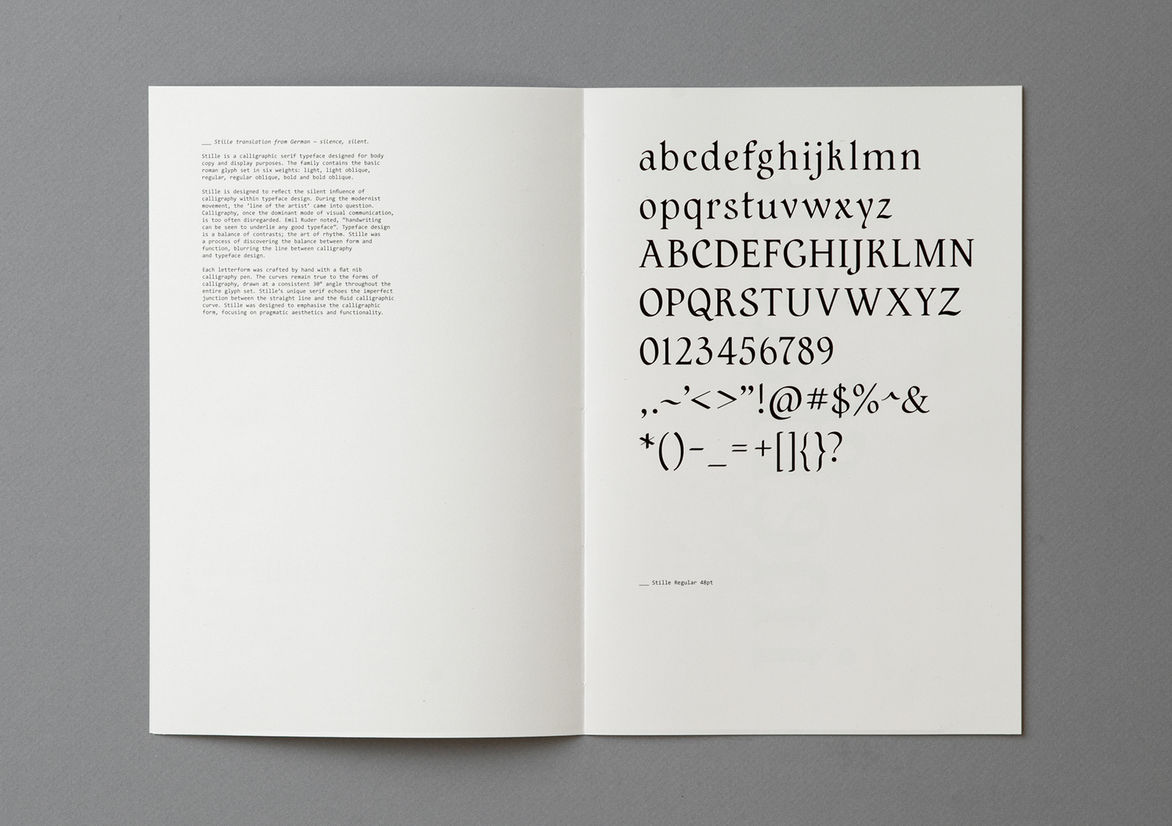 ___ Stille translation from German — silence, silent.
Stille is a calligraphic serif typeface designed for body
copy and display purposes. The family contains the basic
roman glyph set in six weights: light, light oblique,
regular, regular oblique, bold and bold oblique.
Stille is designed to reflect the silent influence of
calligraphy within typeface design. During the modernist
movement, the 'line of the artist' came into question.
Calligraphy, once the dominant mode of visual communication,
is too often disregarded. Emil Ruder noted, "handwriting
can be seen to underlie any good typeface". Typeface design
is a balance of contrasts; the art of rhythm. Stille was
a process of discovering the balance between form and
function, blurring the line between calligraphy
and typeface design.
Each letterform was crafted by hand with a flat nib
calligraphy pen. The curves remain true to the forms of
calligraphy, drawn at a consistent 30° angle throughout the
entire glyph set. Stille's unique serif echoes the imperfect
junction between the straight line and the fluid calligraphic
curve. Stille was designed to emphasise the calligraphic
form, focusing on pragmatic aesthetics and functionality.
abcdefghijklmn
opqrstuvwxyz
ABCDEFGHIJKLMN
OPQRSTUVWXYZ
0123456789
,.~’<>”!@#$%^&
*()-_=+[]{}?
___ Stille Regular 48pt